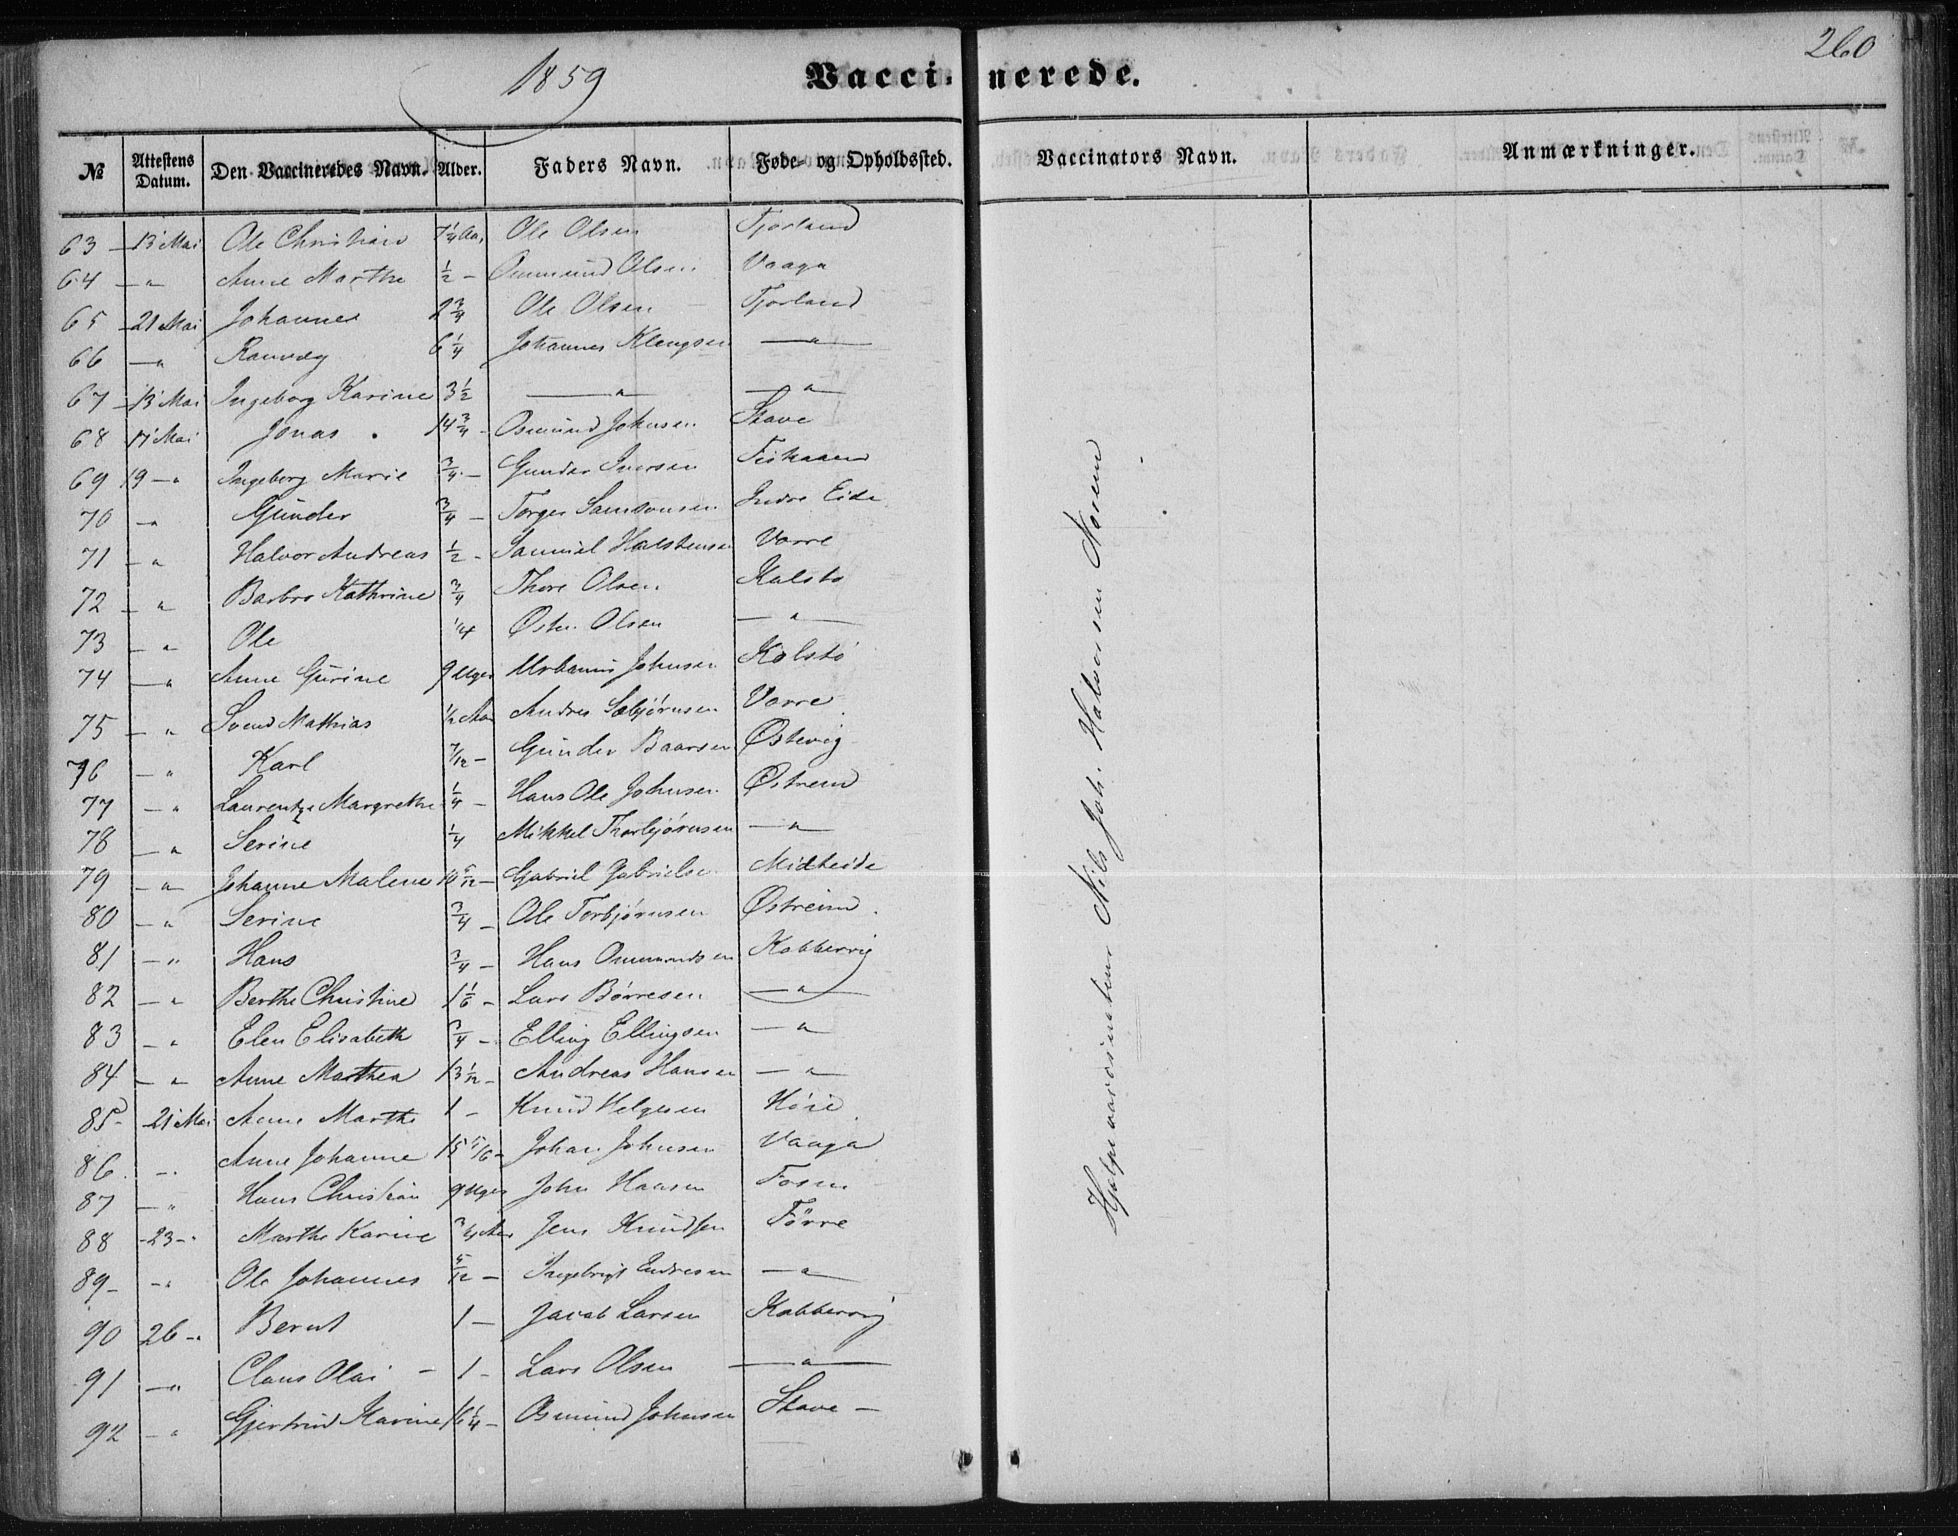 260
1859
Vaccinerede.
№ Attestens Datum. Den Vaccineredes Navn. Alder. Faders Navn. Føde- og Opholdssted. Vaccinators Navn. Anmærkninger.
63 - 13 Mai Ole Christian 7 1/4 Aar Ole Olsen Tjorland
64 - " Anne Marthe 1/2 - Ommund Olsen Vaaga
65 - 21 Mai Johannes 2 3/4 Ole Olsen - Tjorland
66 - " Ranveg 6 1/4 Johannes Klengsen - " -
67 - 13 Mai Ingeborg Karine 3 1/2 - " - - " -
68 17 Mai Jonas 14 3/4 - Osmund Johnsen Stave
69 19 - " Ingeborg Marie 3/4 - Gunder Iversen
70 - " Gunder 3/4 - Torger Samsonsen Indre Eide
71 - " Halvor Andreas 1/2 - Samuel Halstensen Vorre
72 - " Barbro Kathrine 3/4 Thore Olsen Kalstø
73 - " Ole 1/4 Østen Olsen - " -
74 - " Anne Gurine 9 Uger Urbanus Johnsen Kolstø
75 - " Svend Mathias 1/2 Aar Andres Sebjørnsen Vorre
76 - " Karl 7/12 - Gunder Baarsen Østevig
77 - " Laurentze Margrethe 1/4 - Hans Ole Johnsen Østrem
78 - " Serine 1/4 Mikkel Thorbjørnsen - " -
79 - " Johanne Malene 10 5/12 - Gabriel Gabrielsen Midteide
80 - " Serine 3/4 - Ole Torbjørnsen Østreim
81 - " Hans 3/4 - Hans Ommundsen Kobbervig
82 - " Berthe Christine 1 1/6 - Lars Børresen - " -
83 - " Elen Elisabeth 3/4 - Elling Ellingsen - "
84 - " Anne Marthea 13 1/12 - Andreas Hansen - "
85 - 21 Mai Anne Marthe 1 - Knud Helgesen Høie
86 - " Anne Johanne 15 5/6 - Johan Johnsen Vaaga
87 - " Hans Christian 9 Uger John Hansen Fosen
88 - 23 - " Marthe Karine 3/4 Aar Jens Knudsen Førre
89 - - " Ole Johannes 5/12 - Ingebrigt Endresen - "
90 26 - " Bernt 1 - Jacob Larsen Kobbervig
91 - " Claus Olai - 1 - Lars Olsen - " -
92 - " Gjertrud Karine 16 1/4 - Osmund Johnsen Stave -
Hjelpevaccinateur Nils Joh. Halvorsen Norem